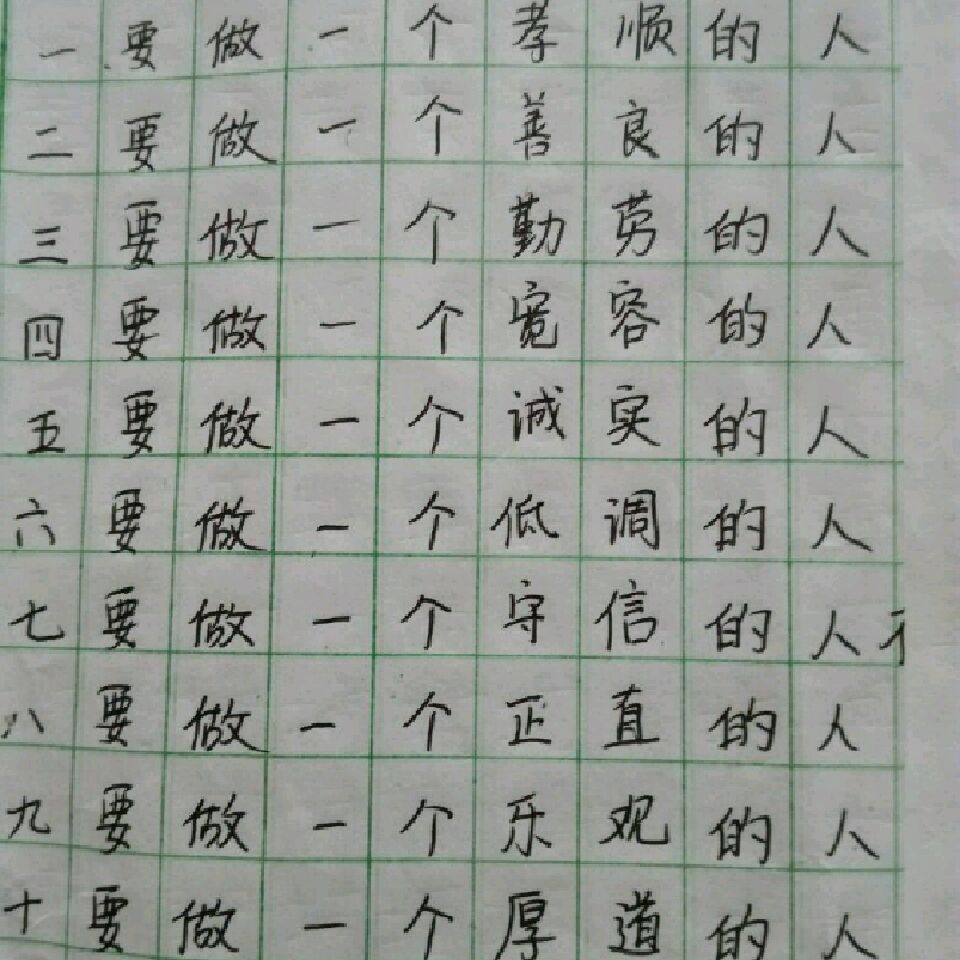 一要做一个孝顺的人
二要做一个善良的人
三要做一个勤劳的人
四要做一个宽容的人
五要做一个诚实的人
六要做一个低调的人
七要做一个守信的人
八要做一个正直的人
九要做一个乐观的人
十要做一个厚道的人